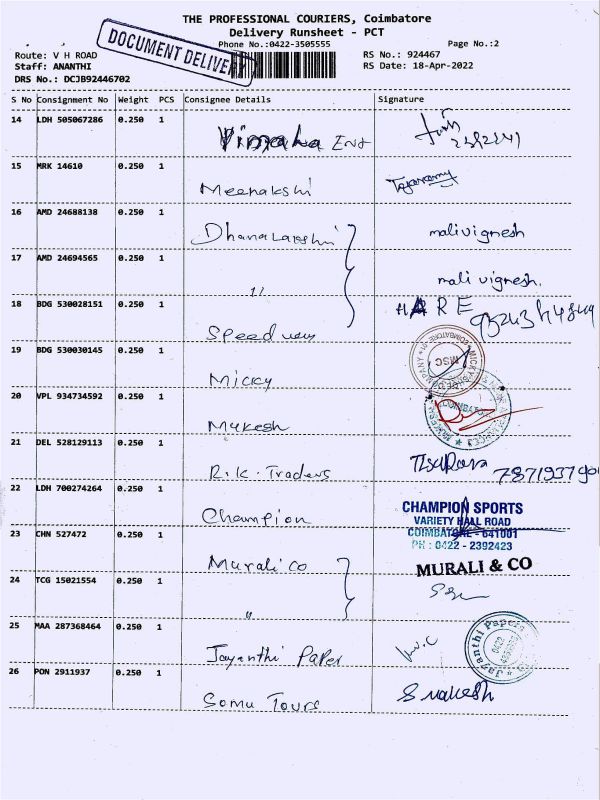 THE PROFESSIONAL COURIERS, Coimbatore
Delivery Runsheet - PCT
Phone No.:0422-3505555
Page No.:2
DOCUMENT DELIVERY
Route: V H ROAD
RS No.: 924467
Staff: ANANTHI
RS Date: 18-Apr-2022
DRS No.: DCJB92446702
S No Consignment No Weight PCS Consignee Details Signature
14 LDH 505067286 0.250 1
Vimala Ent
15 MRK 14610 0.250 1
Meenakshi
16 AMD 24688138 0.250 1
Dhanalakshmi malivignesh
17 AMD 24694565 0.250 1
" mali vignesh.
18 BDG 530028151 0.250 1
Speed way HARE
19 BDG 530030145 0.250 1
Micky
MSC
20 VPL 934734592 0.250 1
Mukesh
21 DEL 528129113 0.250 1
R.K. Traders
22 LDH 700274264 0.250 1
Champion
CHAMPION SPORTS
VARIETY HALL ROAD
COIMBATORE - 641001
PH : 0422 - 2392423
23 CHN 527472 0.250 1
Murali co
MURALI & CO
24 TCG 15021554 0.250 1
"
25 MAA 287368464 0.250 1
Jayanthi Paper
Jayanthi Papers
26 PON 2911937 0.250 1
Somu Tours